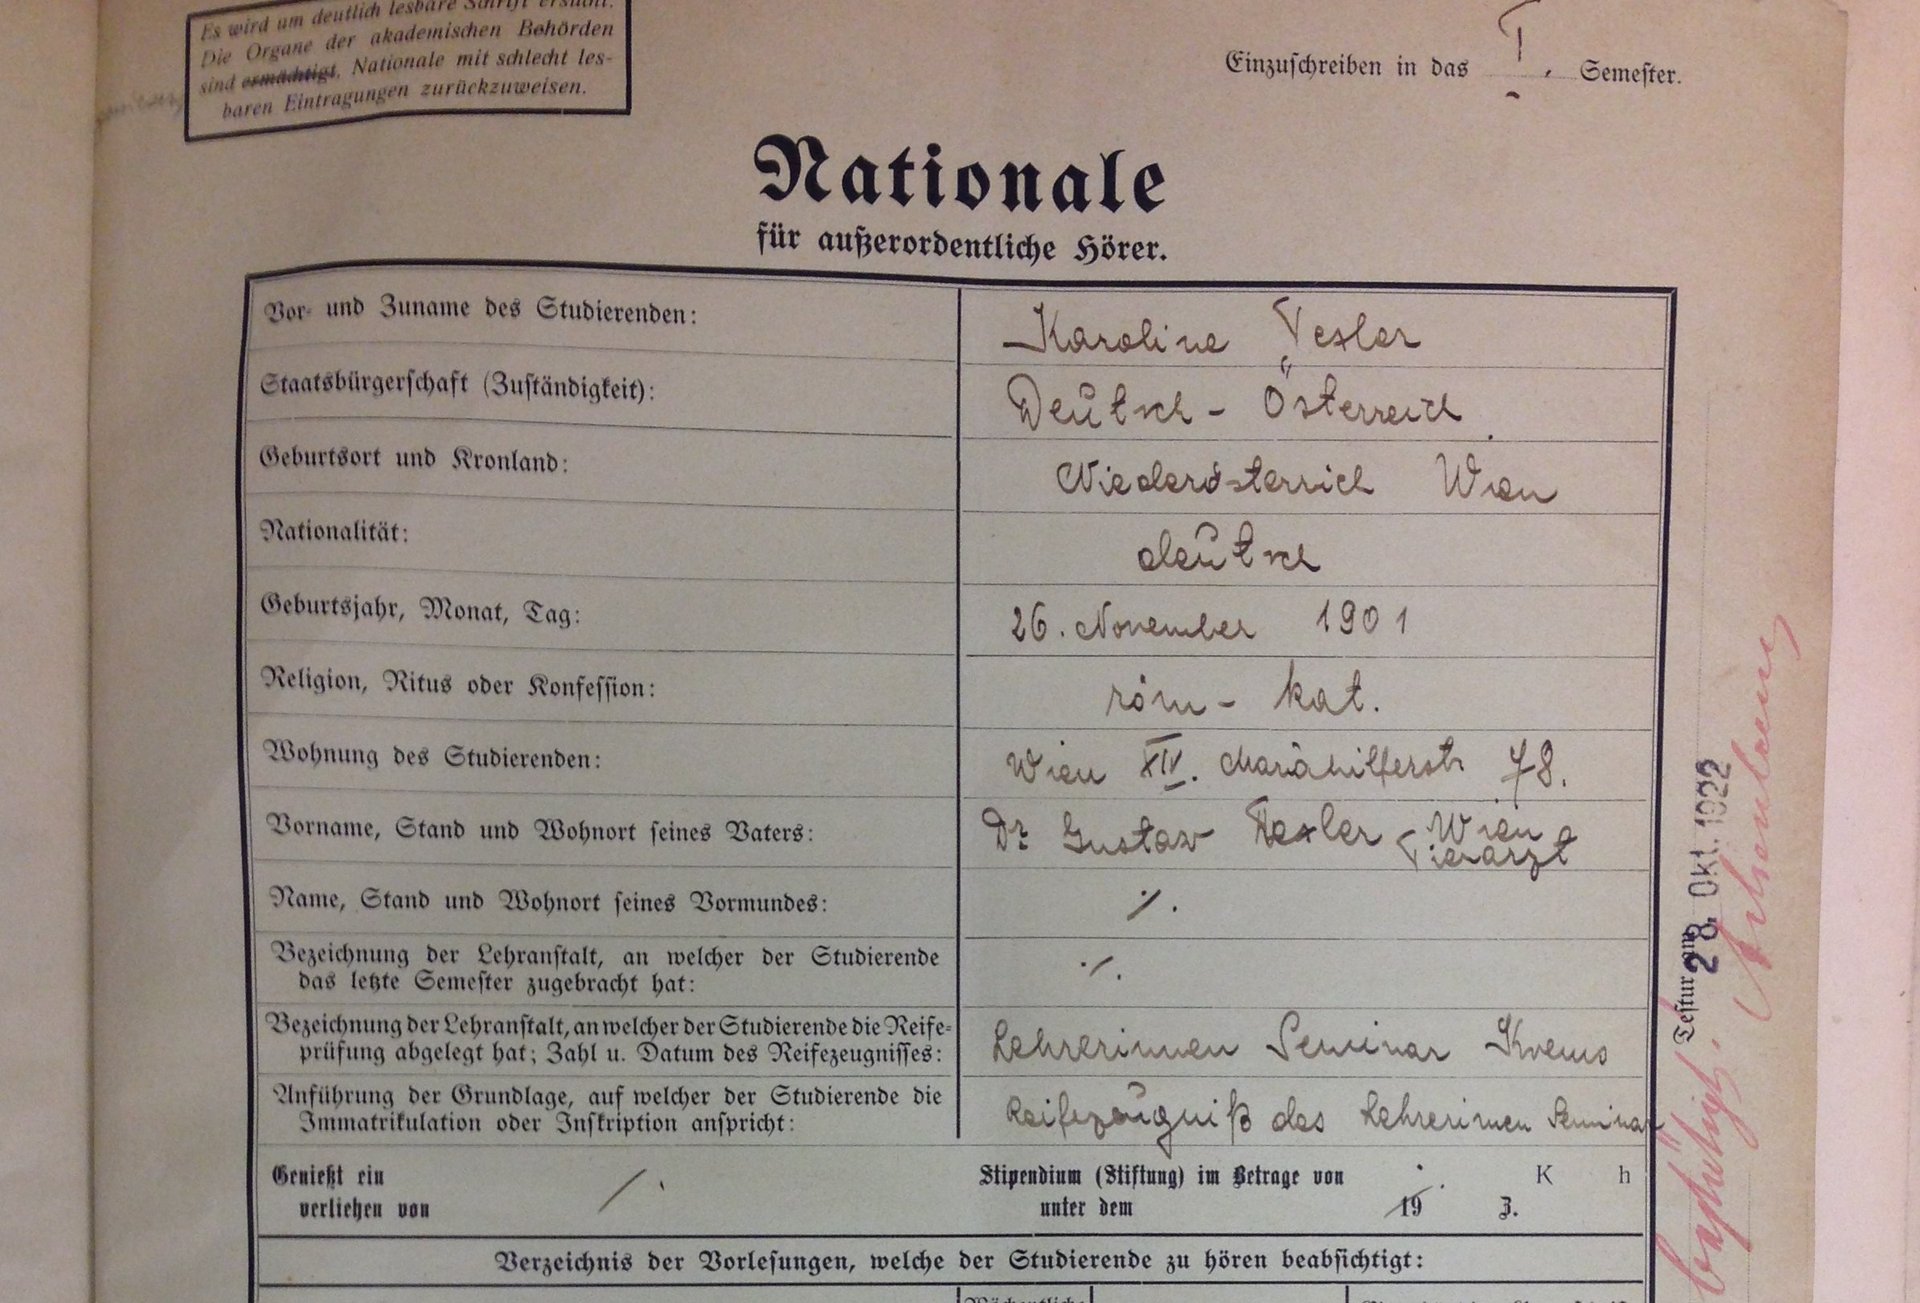 Es wird um deutlich lesbare Schrift ersucht.
Die Organe der akademischen Behörden
sind ermächtigt, Nationale mit schlecht les-
baren Eintragungen zurückzuweisen.
Einzuschreiben in das I. Semester.
Nationale
für außerordentliche Hörer.
Vor- und Zuname des Studierenden: Karoline Texler
Staatsbürgerschaft (Zuständigkeit): Deutsch-Österreich
Geburtsort und Kronland: Niederösterreich Wien
Nationalität: deutsch
Geburtsjahr, Monat, Tag: 26. November 1901
Religion, Ritus oder Konfession: röm-kat.
Wohnung des Studierenden: Wien XIV. Mariahilferstr 78.
Vorname, Stand und Wohnort seines Vaters: Dr Gustav Texler Wien
Tierarzt
Name, Stand und Wohnort seines Vormundes: ./.
Bezeichnung der Lehranstalt, an welcher der Studierende
das letzte Semester zugebracht hat: ./.
Bezeichnung der Lehranstalt, an welcher der Studierende die Reife-
prüfung abgelegt hat; Zahl u. Datum des Reifezeugnisses: Lehrerinnen Seminar Krems
Anführung der Grundlage, auf welcher der Studierende die
Immatrikulation oder Inskription anspricht: Reifezeugniß des Lehrerinnen Seminar
Genießt ein Stipendium (Stiftung) im Betrage von K h
verliehen von unter dem 19 Z.
Verzeichnis der Vorlesungen, welche der Studierende zu hören beabsichtigt:
Testur am 28. Okt. 1922